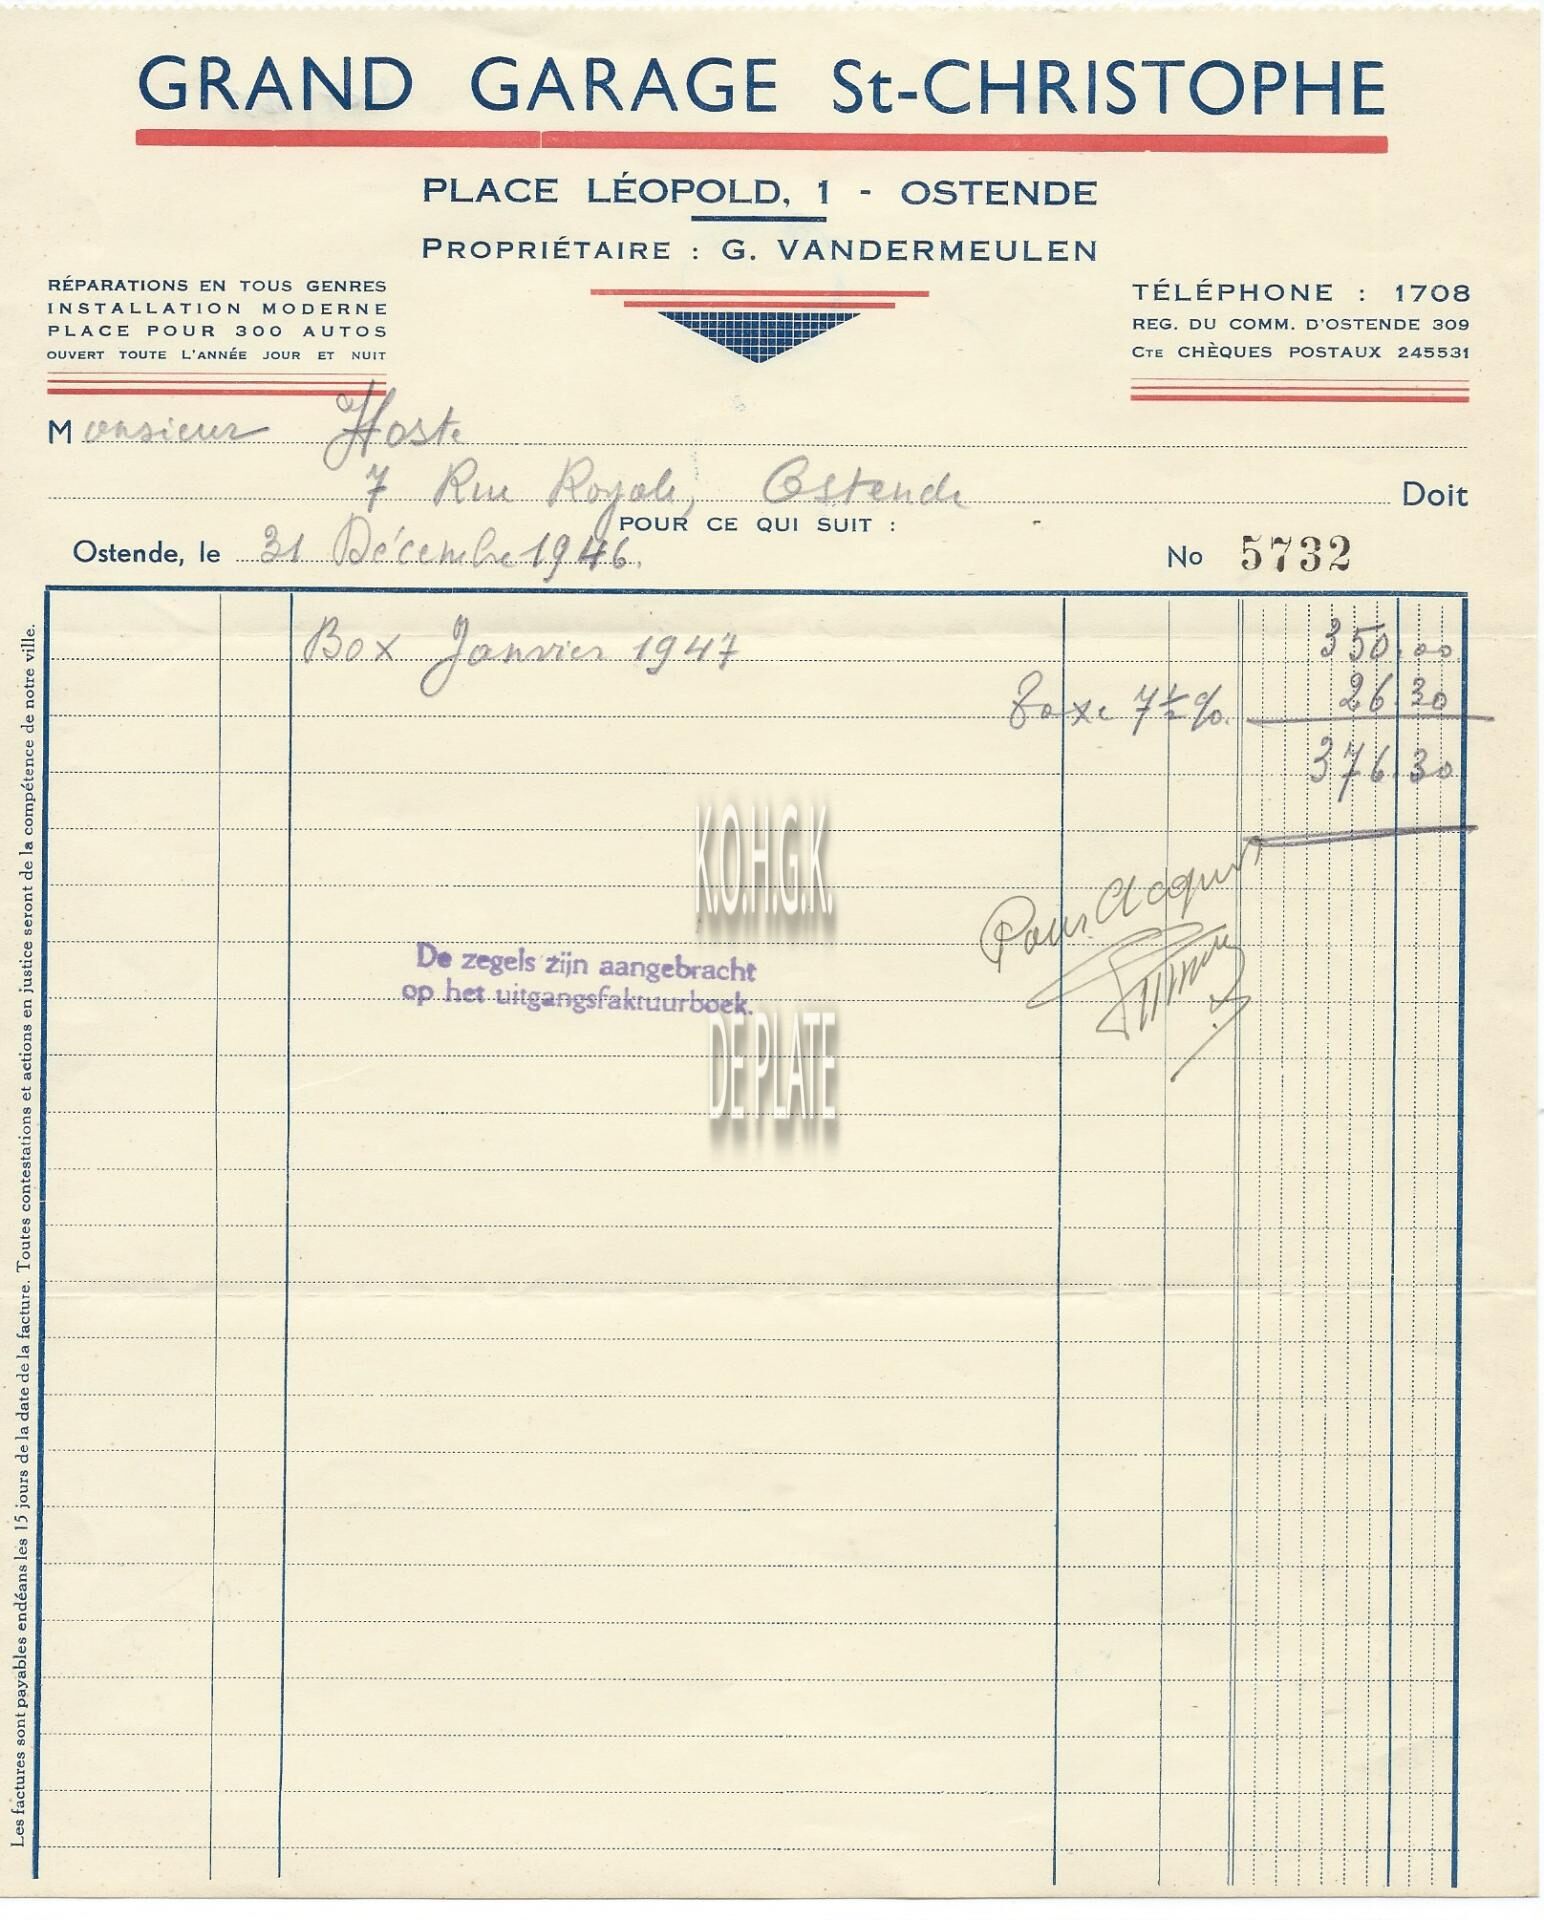 GRAND GARAGE St-CHRISTOPHE
PLACE LÉOPOLD, 1 - OSTENDE
PROPRIÉTAIRE : G. VANDERMEULEN
RÉPARATIONS EN TOUS GENRES
INSTALLATION MODERNE
PLACE POUR 300 AUTOS
OUVERT TOUTE L'ANNÉE JOUR ET NUIT
TÉLÉPHONE : 1708
REG. DU COMM. D'OSTENDE 309
CTE CHÈQUES POSTAUX 245531
Monsieur Hoste
7 Rue Royale, Ostende Doit
POUR CE QUI SUIT :
Ostende, le 31 Décembre 1946. No 5732
Box Janvier 1947 350.00
Taxe 7 1/2 %. 26.30
376.30
K.O.H.G.K.
Pour Acquit
De zegels zijn aangebracht
op het uitgangsfaktuurboek.
DE PLATE
Les factures sont payables endéans les 15 jours de la date de la facture. Toutes contestations et actions en justice seront de la compétence de notre ville.